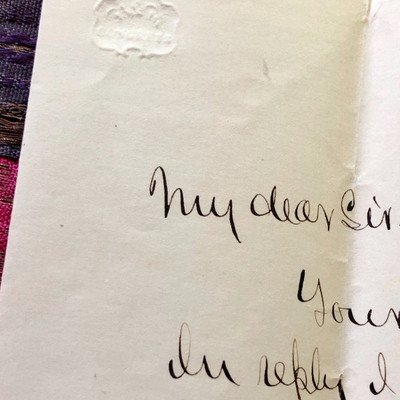 My dear Sir.
Your
In reply I